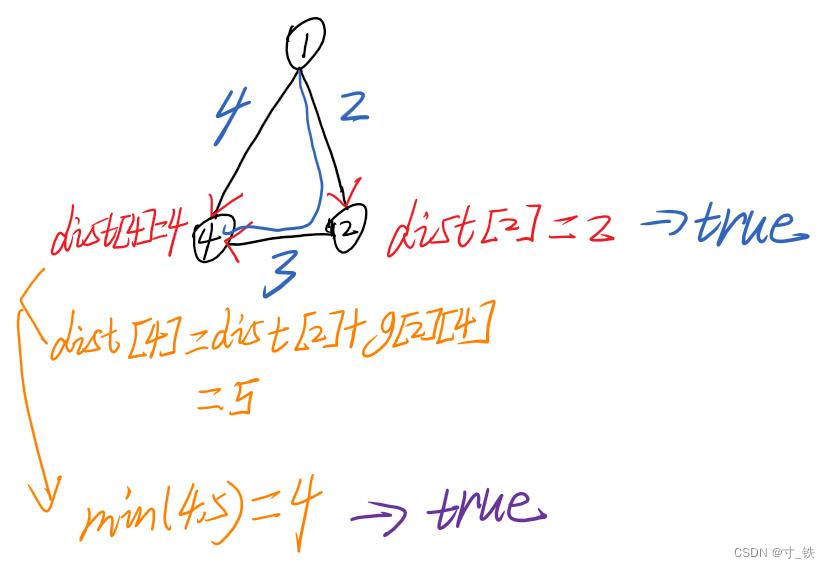 1
4
2
dist[4]=4
4
2
dist[2]=2 →true
3
dist[4]=dist[2]+g[2][4]
=5
min(4,5)=4 → true
CSDN @寸_铁